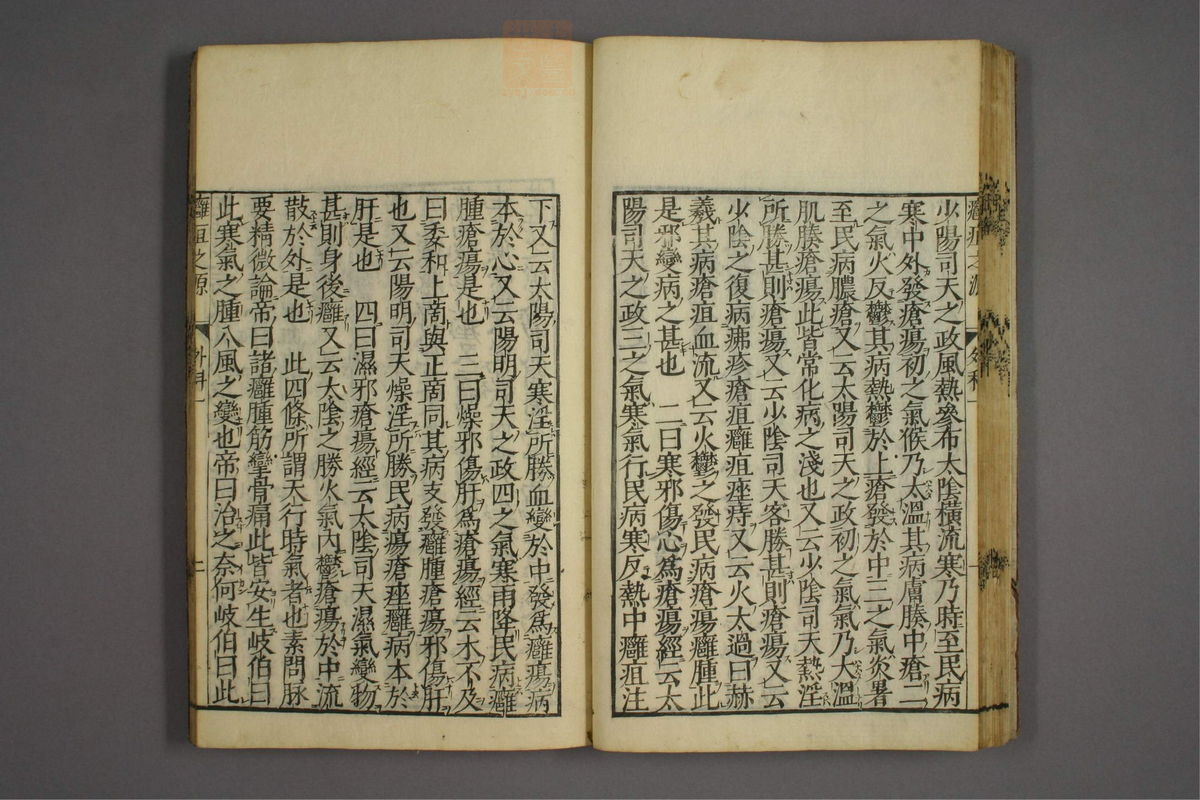 癰疽之源 外科一
少陽司天之政風熱參布太陰橫流寒乃時至民病
寒中外發瘡瘍初之氣候乃太溫其病膚腠中瘡二
之氣火反欝其病熱欝於上瘡發於中三之氣炎暑
至民病膿瘡又云太陽司天之政初之氣氣乃大溫
肌腠瘡瘍此皆常化病之淺也又云少陰司天熱淫
所勝甚則瘡瘍又云少陰司天客勝甚則瘡瘍又云
少陰之復病疿疹瘡疽癰疽痤痔又云火太過曰赫
羲其病瘡疽血流又云火欝之發民病瘡瘍癰腫此
是邪變病之甚也 二曰寒邪傷心爲瘡瘍經云太
陽司天之政三之氣寒氣行民病寒反熱中癰疽注
下又云太陽司天寒淫所勝血變於中發爲癰瘍病
本於心又云陽明司天之政四之氣寒雨降民病癰
腫瘡瘍是也 三曰燥邪傷肝爲瘡瘍經云木不及
曰委和上商與正商同其病支發癰腫瘡瘍邪傷肝
也又云陽明司天燥淫所勝民病瘍瘡痤癰病本於
肝是也 四曰濕邪瘡瘍經云太陰司天濕氣變物
甚則身後癰又云太陰之勝火氣內欝瘡瘍於中流
散於外是也 此四條所謂天行時氣者也素問脉
要精微論帝曰諸癰腫筋攣骨痛此皆安生岐伯曰
此寒氣之腫八風之變也帝曰治之奈何岐伯曰此
癰疽之源 外科一 二